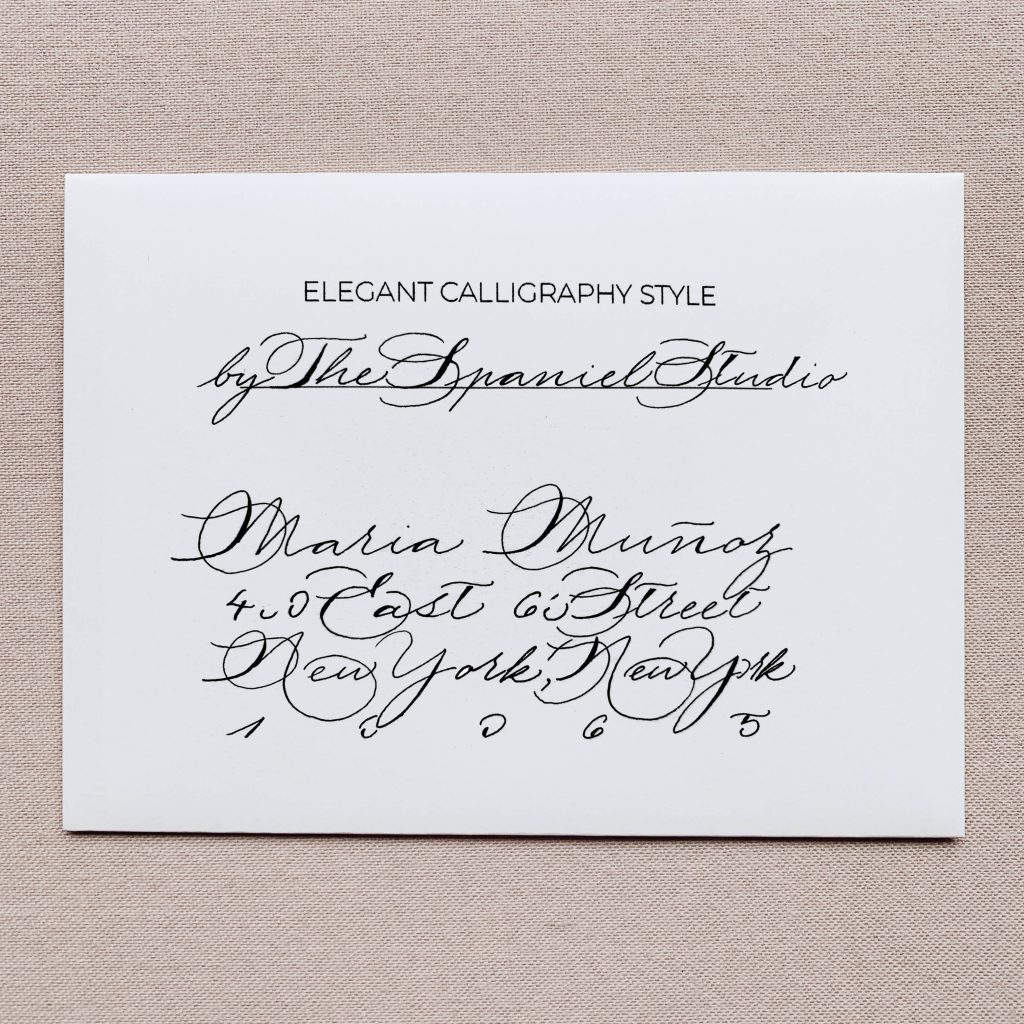 ELEGANT CALLIGRAPHY STYLE
by The Spaniel Studio
Maria Muñoz
East Street
New York, New York
1 0 0 6 5